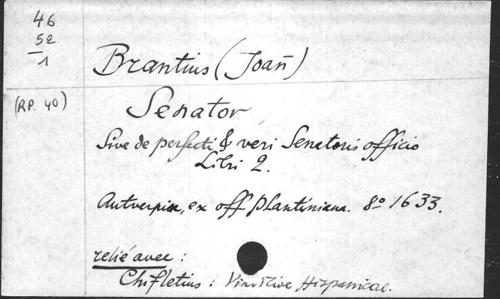 46
52
1
Brantius (Joañ)
(RP. 40)
Senator
Sive de perfecti & veri Senatoris officio
Libri 2.
Antverpiæ, ex off Plantiniana. 8º 1633.
relié avec :
Chifletius : Vindiciæ Hispanicae.